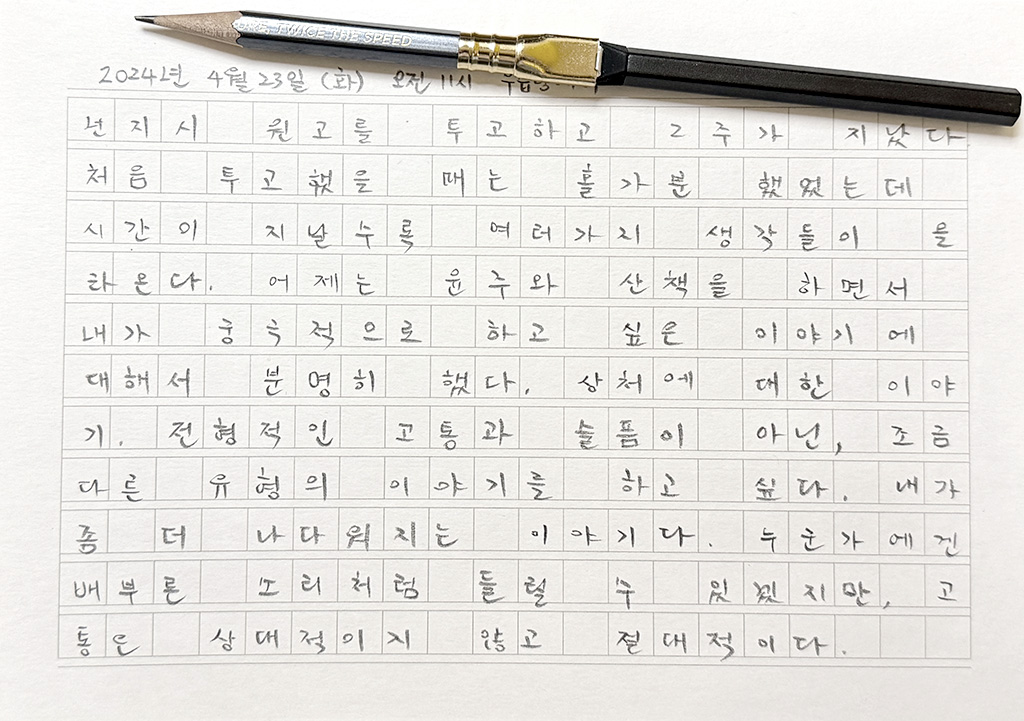 TWICE THE SPEED
2024년 4월 23일 (화) 오전 11시
넌지시 원고를 투고하고 2주가 지났다
처음 투고했을 때는 홀가분 했었는데
시간이 지날수록 여러가지 생각들이 올
라온다. 어제는 윤주와 산책을 하면서
내가 궁극적으로 하고 싶은 이야기에
대해서 분명히 했다. 상처에 대한 이야
기. 전형적인 고통과 슬픔이 아닌, 조금
다른 유형의 이야기를 하고 싶다. 내가
좀 더 나다워지는 이야기다. 누군가에겐
배부른 소리처럼 들릴 수 있겠지만, 고
통은 상대적이지 않고 절대적이다.